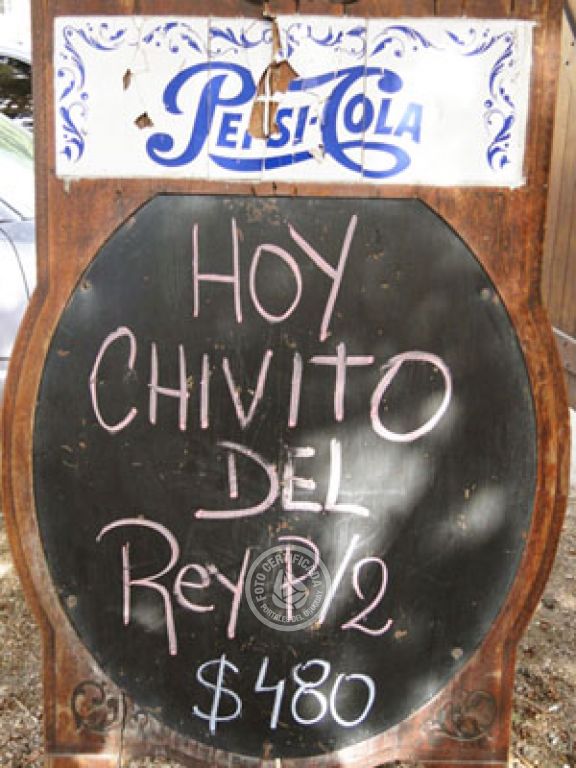 PEPSI-COLA
HOY
CHIVITO
DEL
REY P/2
FOTO CERTIFICADA
PORTALES DEL URUGUAY
$480